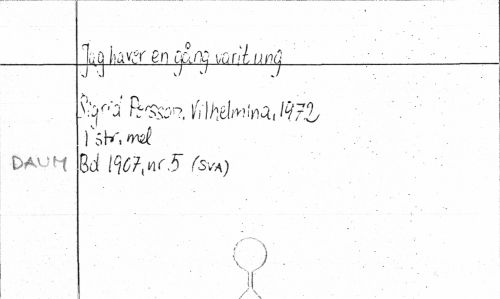 Jag haver en gång varit ung
Sigrid Persson, Vilhelmina, 1972
1 str, mel
DAUM Bd 1907, nr. 5 (SVA)